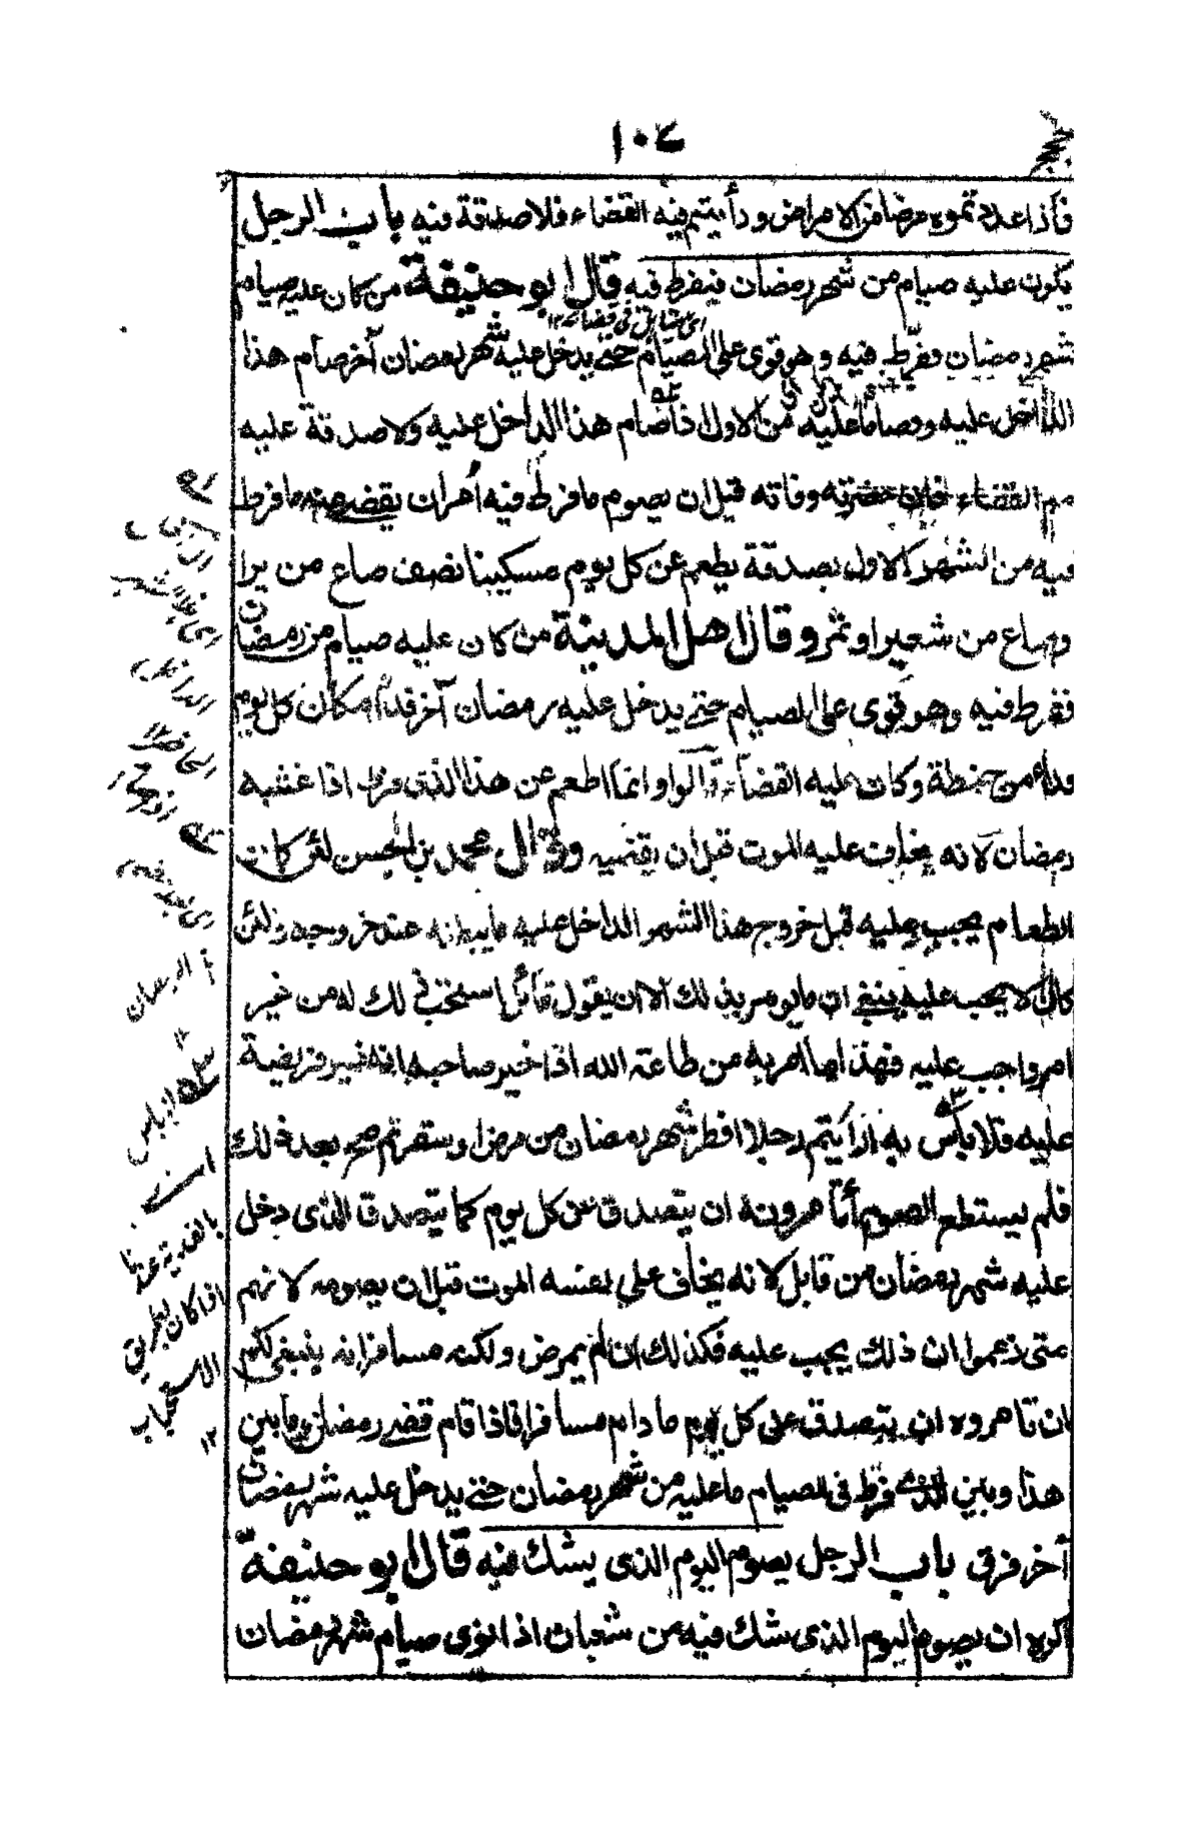 ١٠٤
فاذا عددتموه مرضا من الامراض و رأيتم فيه القضاء فلا صدقة فيه باب الرجل
يكون عليه صيام من شهر رمضان فيفرط فيه قال ابو حنيفة من كان عليه صيام
شهر رمضان ففرط فيه وهو قوى على الصيام حتى يدخل عليه شهر رمضان آخر صام هذا
الداخل عليه وقضى ما عليه من الاول اذا صام هذا الداخل عليه ولا صدقة عليه
مع القضاء فان حضرته وفاته قبل ان يصوم ما فرط فيه أمر ان يقضى عنه ما فرط
فيه من الشهر الاول بصدقة يطعم عن كل يوم مسكينا نصف صاع من بر او
صاع من شعير او تمر وقال اهل المدينة من كان عليه صيام من رمضان
ففرط فيه وهو قوى على الصيام حتى يدخل عليه رمضان آخر فدا مكان كل يوم
مدا من حنطة وكان عليه القضاء قالوا وانما اطعم عن هذا الذى فرط اذا غشيه
رمضان لانه يخاف عليه الموت قبل ان يقضيه وقال محمد بن الحسن لئن كانت
الطعام يجب عليه قبل خروج هذا الشهر الداخل عليه ما يبطله عند خروجه ولئن
كان لا يجب عليه ينبغى ان ما يومر بذلك الا ان يقول قائل استحب ذلك له من غير
امر واجب عليه فهذا مما امر به من طاعة الله اذا اخبر صاحبه بانه غير فريضة
عليه فلا بأس به أرأيتم رجلا افطر شهر رمضان من مرض او سفر ثم صح بعد ذلك
فلم يستطع الصوم أتأمرونه ان يتصدق عن كل يوم كما يتصدق الذى دخل
عليه شهر رمضان من قابل لانه يخاف على نفسه الموت قبل ان يصومه لانهم
متى زعموا ان ذلك يجب عليه فكذلك ان لم يمرض ولكنه مسافر انه ينبغى لكم
ان تامروه ان يتصدق عن كل يوم ما دام مسافرا فاذا قام قضى رمضان وما بين
هذا وبين الذى فرط فى الصيام ما عليه من شهر رمضان حتى يدخل عليه شهر رمضان
آخر فرق باب الرجل يصوم اليوم الذى يشك فيه قال ابو حنيفة
اكره ان يصوم اليوم الذى شك فيه من شعبان اذا نوى صيام شهر رمضان
الداخل
الحاضر ١٢
لا بأس
بالفدية عندنا
اذا كان بطريق
الاستحباب
١٢